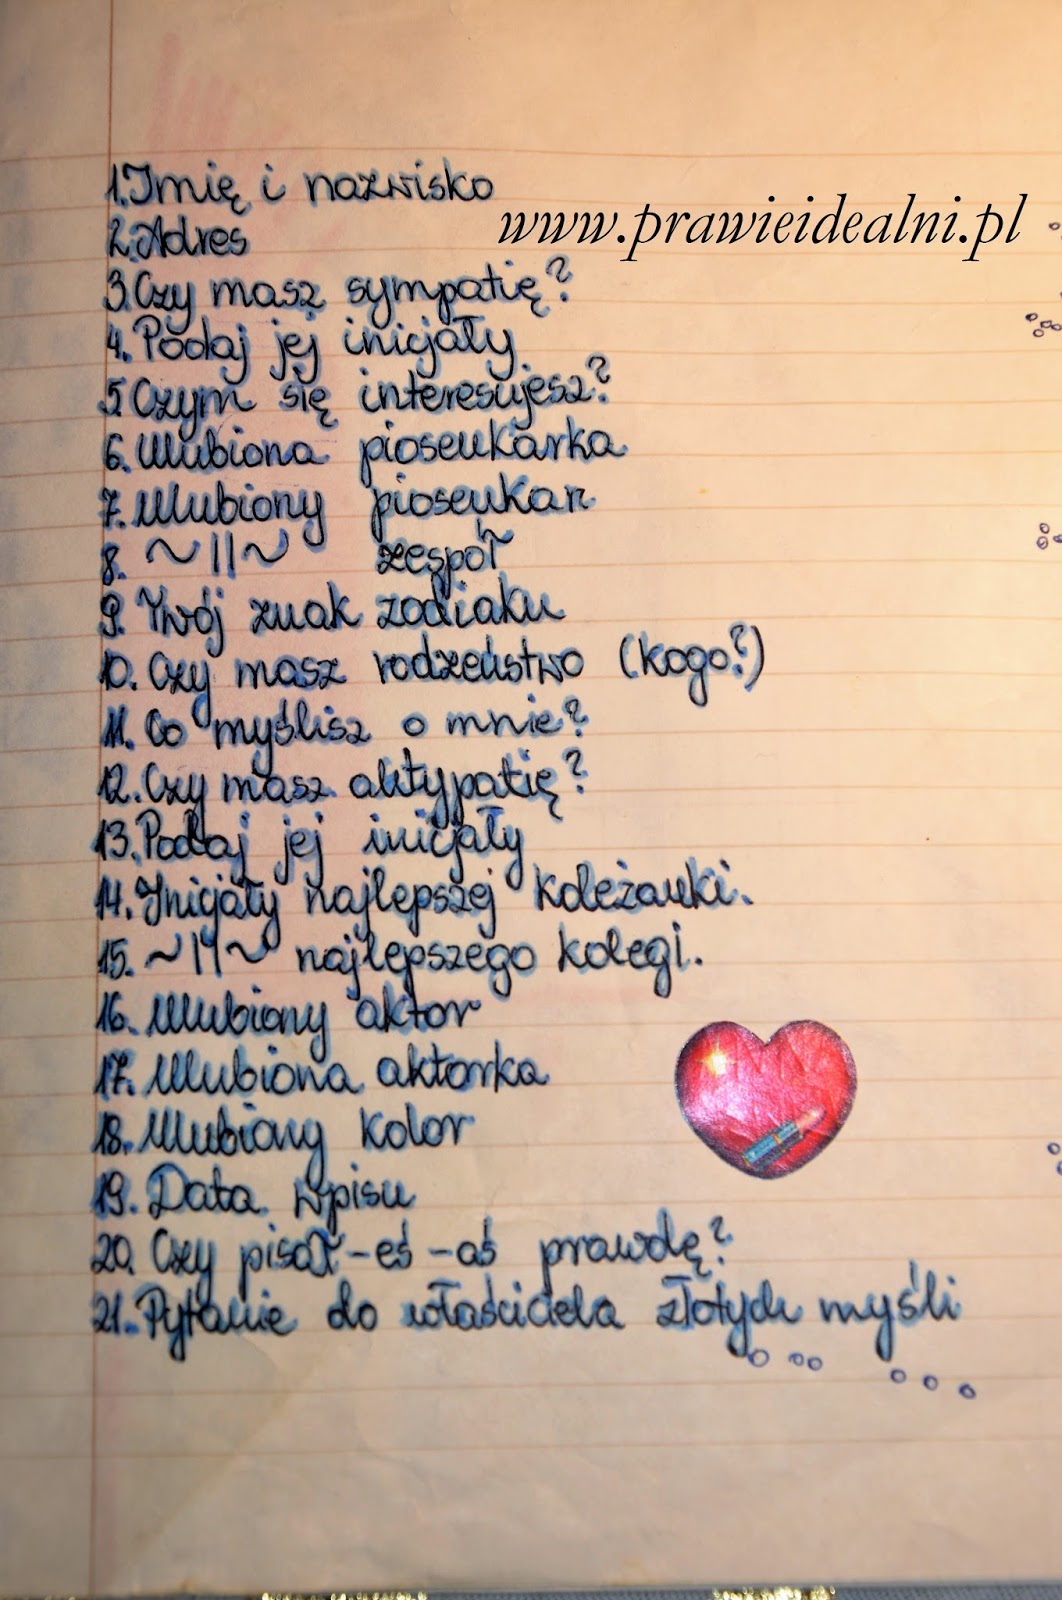 1. Imię i nazwisko
www.prawieidealni.pl
2. Adres
3. Czy masz sympatię?
4. Podaj jej inicjały
5. Czym się interesujesz?
6. Ulubiona piosenkarka
7. Ulubiony piosenkarz
8. ~11~ zespół
9. Twój znak zodiaku
10. Czy masz rodzeństwo (kogo?)
11. Co myślisz o mnie?
12. Czy masz aktypatię?
13. Podaj jej inicjały
14. Inicjały najlepszej koleżanki.
15. ~11~ najlepszego kolegi.
16. Ulubiony aktor
17. Ulubiona aktorka
18. Ulubiony kolor
19. Data wpisu
20. Czy pisał-eś -aś prawdę?
21. Pytanie do właściciela złotych myśli